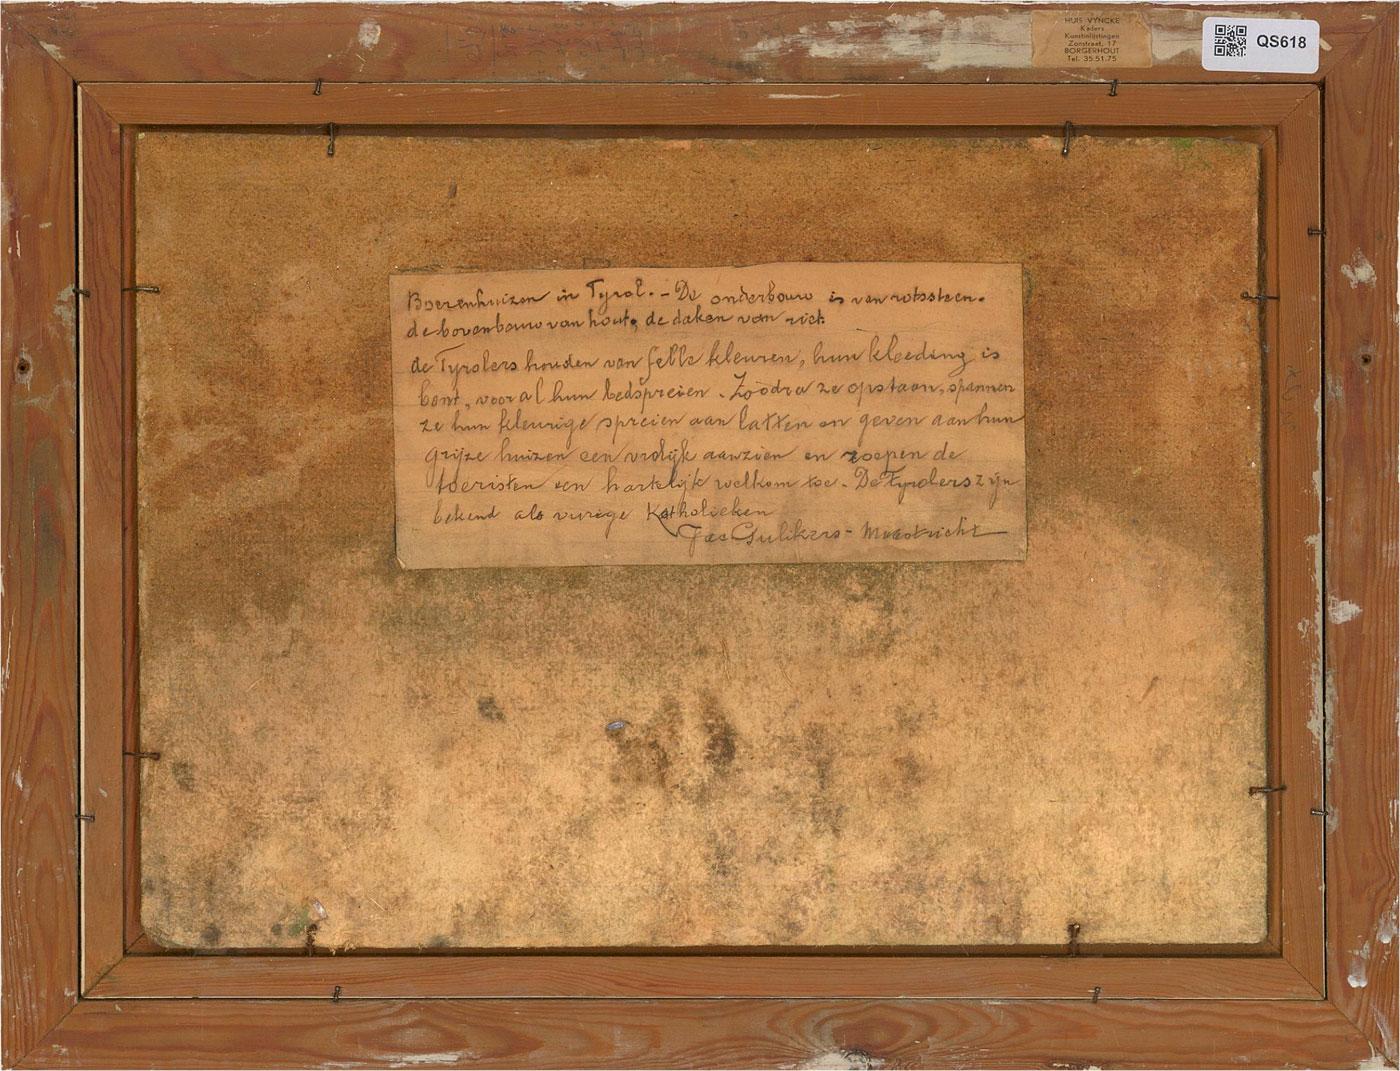 HUIS VYNCKE
Kaders
Kunstinlijstingen
Zonstraat, 17
BORGERHOUT
Tel. 35.51.75
QS618
Boerenhuizen in Tyrol. - De onderbouw is van rotssteen.
de bovenbouw van hout, de daken van riet.
de Tyrolers houden van felle kleuren, hun kleeding is
bont, vooral hun bedspreien. Zoodra ze opstaan, spannen
ze hun kleurige spreien aan latten en geven aan hun
grijze huizen een vrolijk aanzien en roepen de
toeristen een hartelijk welkom toe. De Tyrolers zijn
bekend als vurige Katholieken
Jac Gulikers - Maastricht